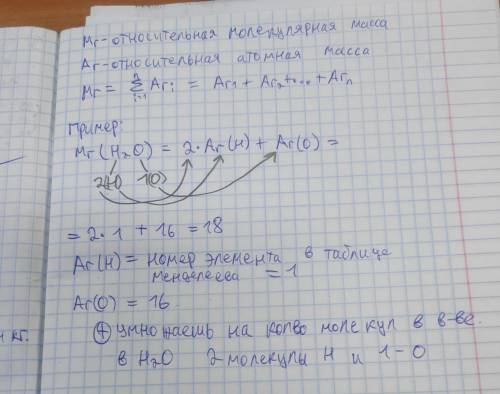 Mr-относительная молекулярная масса
Ar-относительная атомная масса
Mr = n Σ i=1 Ari = Ar1 + Ar2 +... + Arn
Пример:
Mr(H2O) = 2·Ar(H) + Ar(O) =
2(H) 1(O)
= 2·1 + 16 = 18
Ar(H) = номер элемента в таблице
менделеева = 1
Ar(O) = 16.
+ умножаешь на колво молекул в в-ве.
в H2O 2-молекулы H и 1-O
кг.